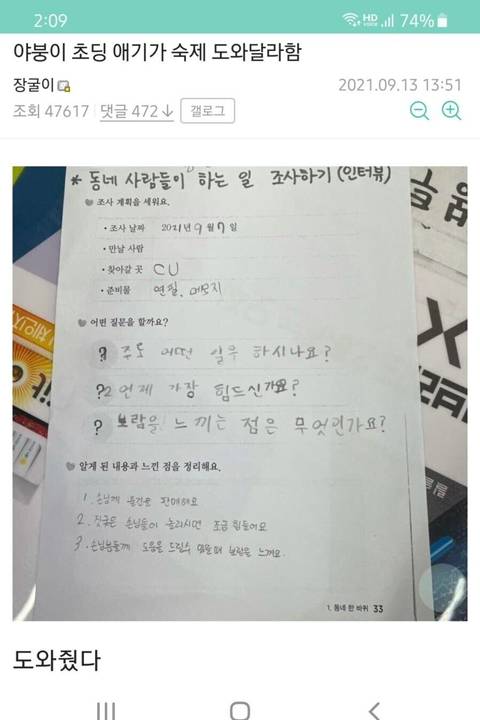 2:09
HD
VOICE
74%
야붕이 초딩 애기가 숙제 도와달라함
장굴이
2021.09.13 13:51
조회 47617 댓글 472 갤로그
* 동네 사람들이 하는 일 조사하기 (인터뷰)
조사 계획을 세워요.
• 조사 날짜 2021년 9월 7일
• 만날 사람
• 찾아갈 곳 CU
• 준비물 연필, 메모지
어떤 질문을 할까요?
? 주로 어떤 일을 하시나요?
?2 언제 가장 힘드신가요?
? 보람을 느끼는 점은 무엇인가요?
알게 된 내용과 느낀 점을 정리해요.
1. 손님께 물건을 판매해요
2. 짓궂은 손님들이 놀리시면 조금 힘들어요
3. 손님분들께 도움을 드릴수 있을때 보람을 느껴요.
1. 동네 한 바퀴 33
도와줬다